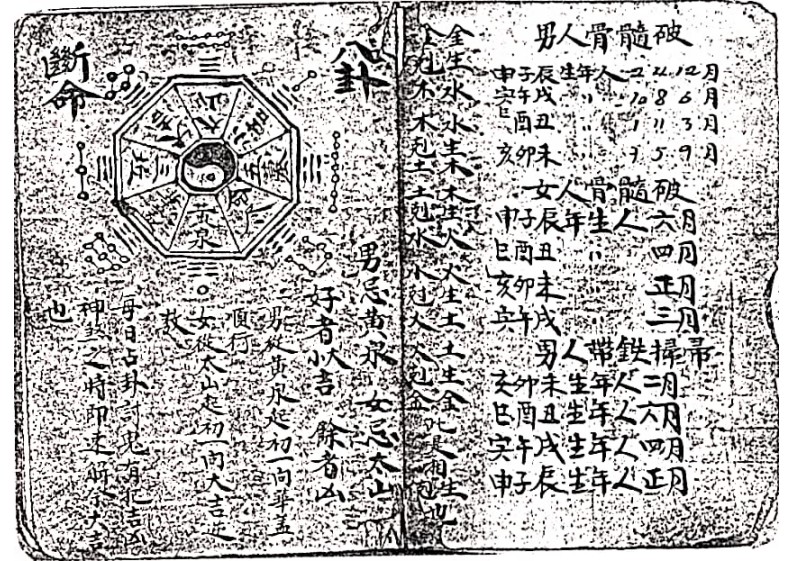 男人骨髓破
申子辰生年人 2 4 12月
寅午戌 〃 〃 10 8 6 月
巳酉丑 〃 〃 1 11 3 月
亥卯未 〃 〃 7 5 9 月
女人骨髓破
申子辰年生人六月
巳酉丑 〃 四月
亥卯未 〃 正月
寅午戌 〃 三月
男人帶鉄掃帚
亥卯未生年人二月
巳酉丑生年人六月
寅午戌生年人四月
申子辰生年人正月
金生水水生木木生火火生土土生金此是相生也
金剋木木剋土土剋水水剋火火剋金
八卦
斷命
黃泉
男忌黃泉 女忌太山
好者小吉 餘者凶
男從黃泉起初一向華蓋
順行
女從太山起初一向大吉逆
救
每日占卦討鬼有犯吉凶
神煞之時即速解令大吉
也